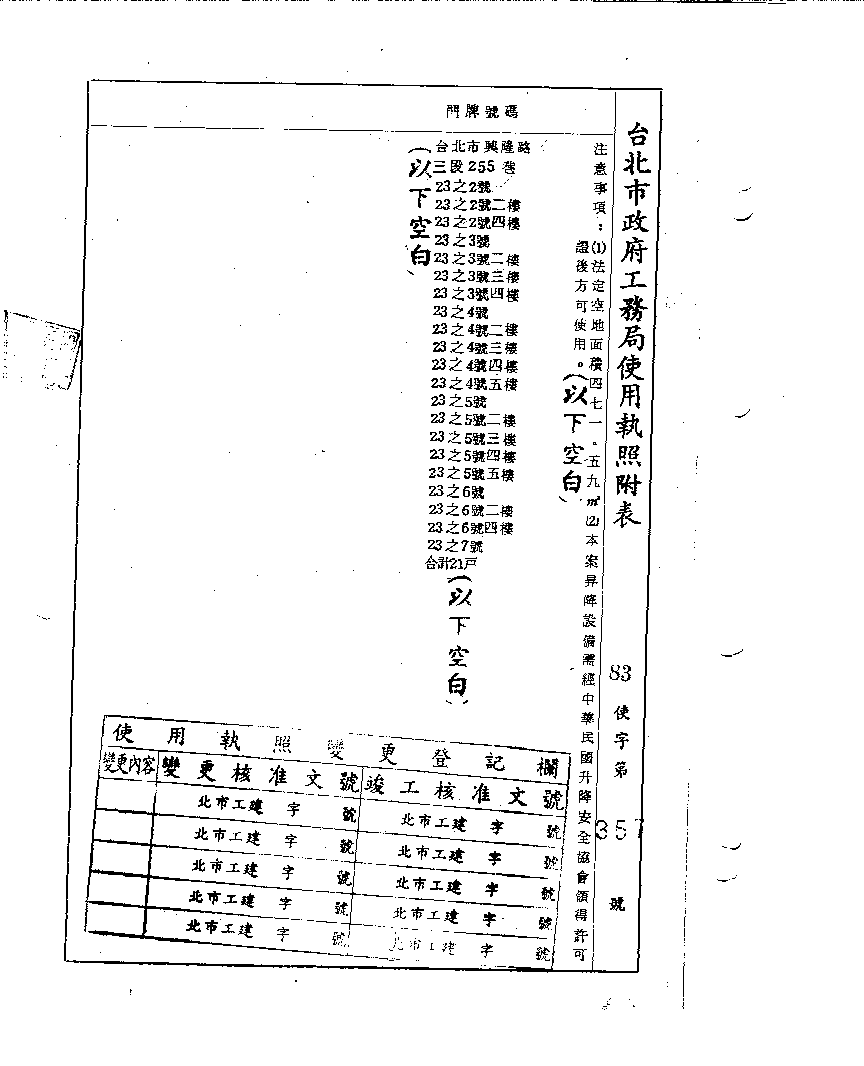 台北市政府工務局使用執照附表
83使字第357號
注意事項：(1)法定空地面積四七一。五九㎡(2)本案昇降設備需經中華民國升降安全協會領得許可
證後方可使用。(以下空白)
門牌號碼
台北市興隆路
三段255巷
23之2號
23之2號二樓
23之2號四樓
23之3號
23之3號二樓
23之3號三樓
23之3號四樓
23之4號
23之4號二樓
23之4號三樓
23之4號四樓
23之4號五樓
23之5號
23之5號二樓
23之5號三樓
23之5號四樓
23之5號五樓
23之6號
23之6號二樓
23之6號四樓
23之7號
合計21戶
(以下空白)
(以下空白)
使用執照變更登記欄
變更內容 變更核准文號 竣工核准文號
北市工建 字 號 北市工建 字 號
北市工建 字 號 北市工建 字 號
北市工建 字 號 北市工建 字 號
北市工建 字 號 北市工建 字 號
北市工建 字 號 北市工建 字 號